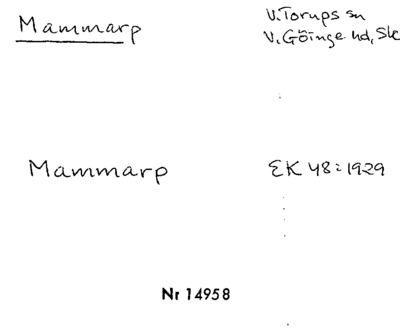 Mammarp
V. Torups sn
V. Göinge hd, Sk
Mammarp
EK 48:1929
Nr 14958